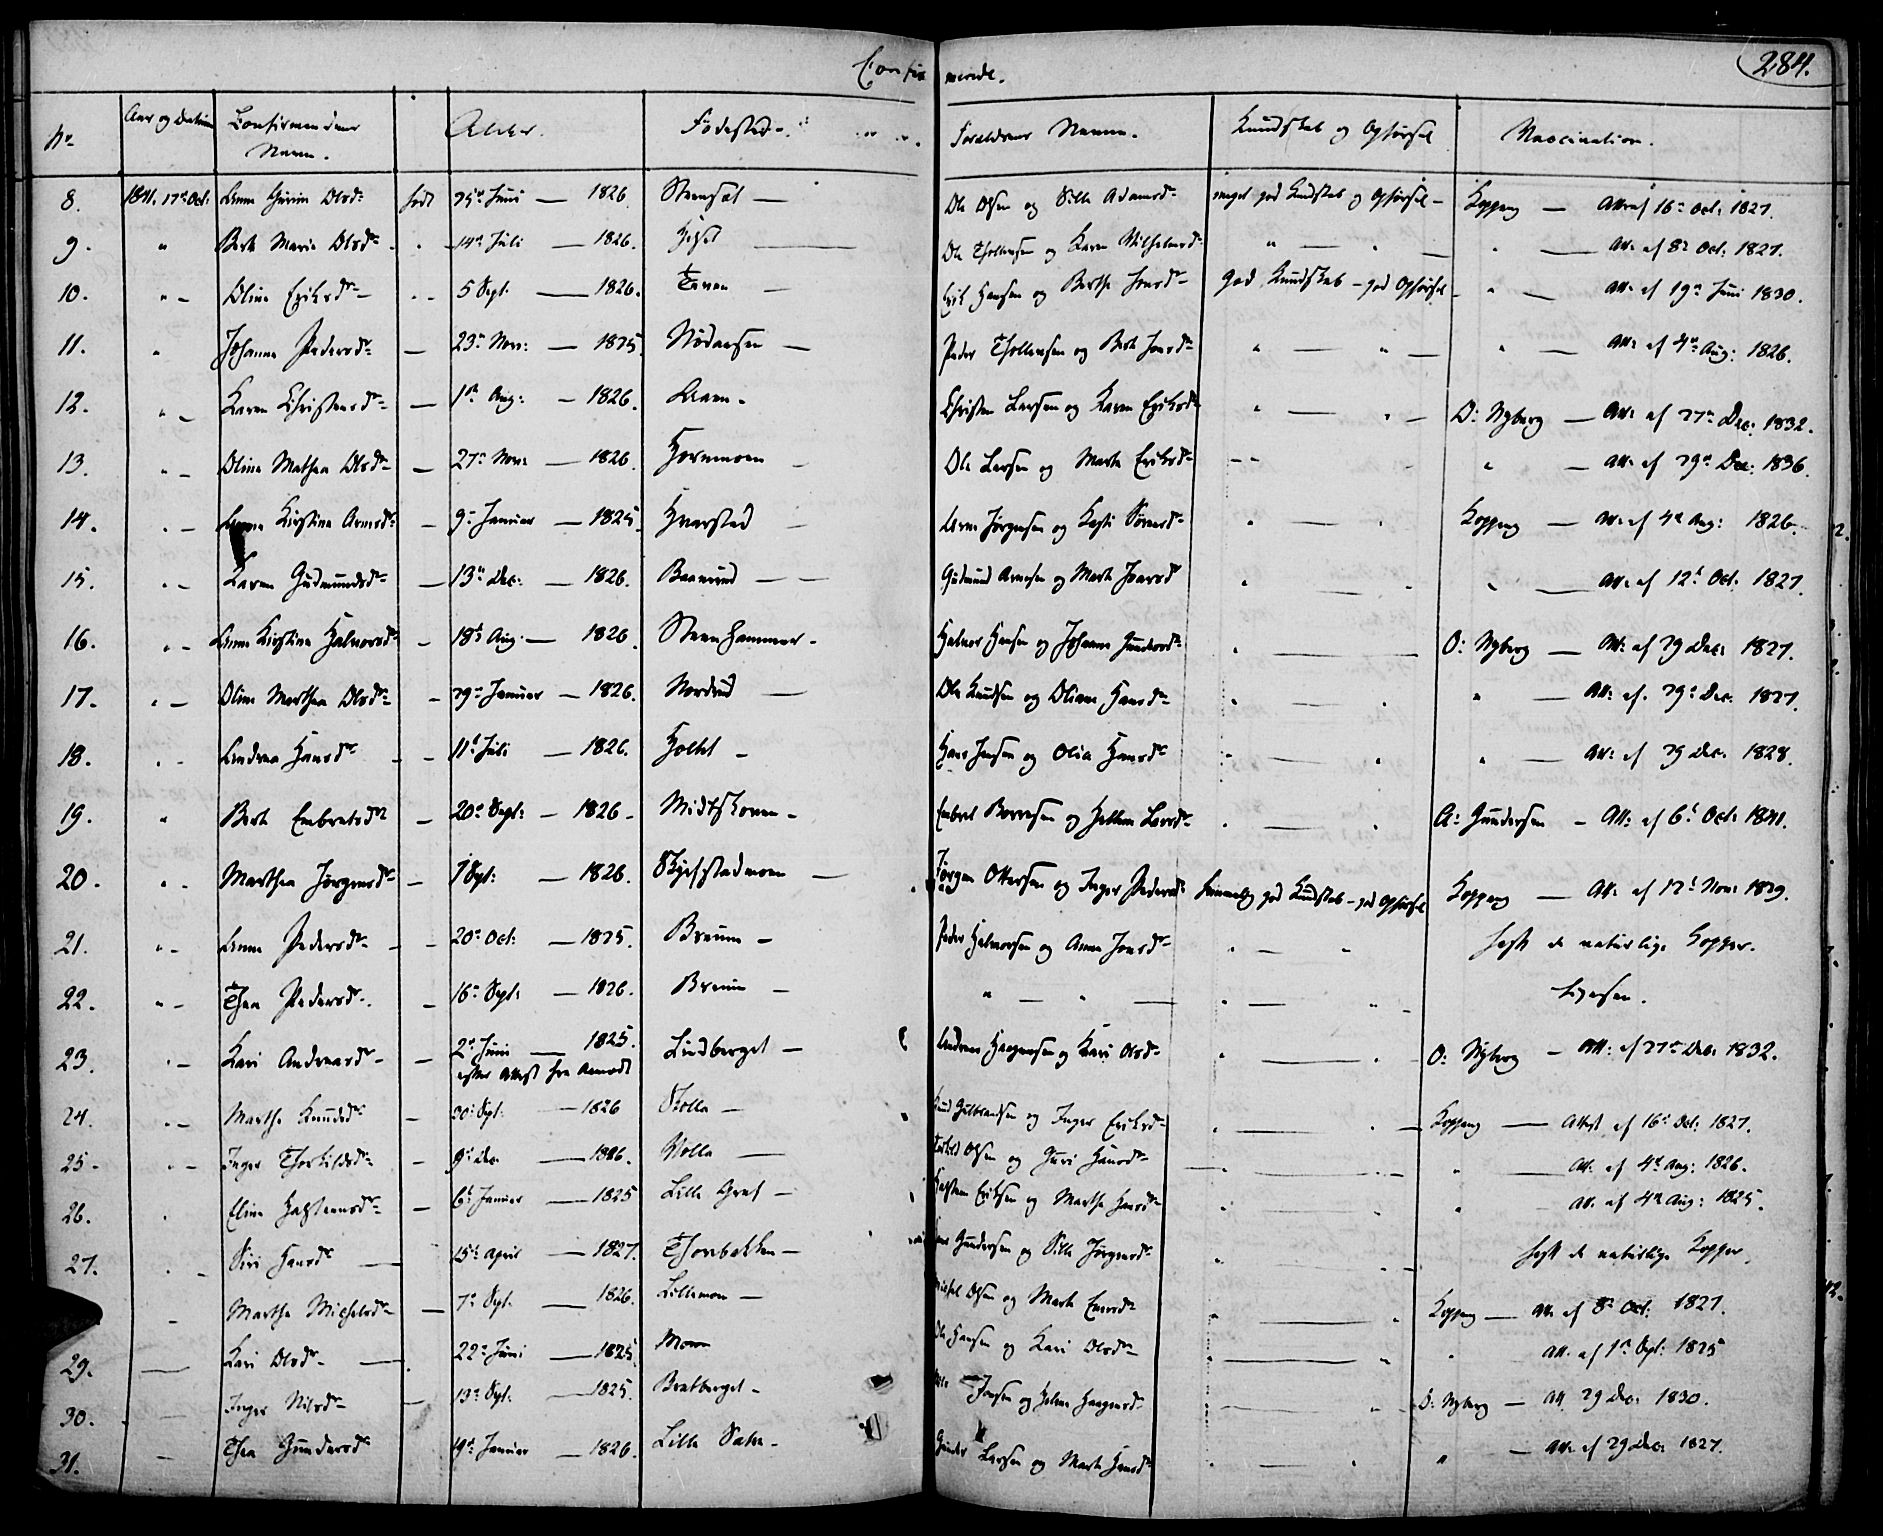 Confirmerede.
284.
No Aar og Datum Confirmandens Navn. Alder. Fødested. Forældrenes Navne. Kundskab og Opførsel Vaccination.
8. 1841. 17de Oct: Anne Gurine Olsd: født 25de Juni — 1826. Steensæt — Ole Olsen og Sille Adamsd: meget god Kundskab og Opførsel — Koppang — Att: af 16de Oct: 1827.
9. " Berte Marie Olsd: 14de Juli — 1826. Ole Thollevsen og Karen Wilhelmsd: " — " — " — Att: af 8de Oct: 1827.
10. " Oline Eriksd: 5 Sept: — 1826. Erik Hansen og Berthe Jonsd: god Kundskab — god Opførsel — " — Att: af 19de Juni 1830.
11. " Johanne Pedersd: — 23de Nov: — 1825. Peder Thollevsen og Berte Jonsd: " — " — " — Att: af 4de Aug: 1826.
12. " Karen Christensd: — 1ste Aug: — 1826. Christen Larsen og Karen Eriksd: " — " — O: Nyberg — Att: af 27de Dec: 1832.
13. " Oline Mathea Olsd: — 27de Nov: — 1826. Hornmoen — Ole Larsen og Marte Eriksd: " — Att: af 29de Dec: 1836.
14. " Kirstine Arnesd: — 9de Januar — 1825. Hvarstad — Arne Jørgensen og " — " Koppang — Att: af 4de Aug: 1826.
15. " Karen Gudmundsd: — 13de Dec: — 1826. Gudmund Arnesen og Marte Iversd: " — " — Att: af 12te Oct: 1827.
16. " Anne Kirstine Halvorsd: — 18de Aug: — 1826. Steenhammer — Halvor Hansen og Johanne Gundersd: " — O: Nyberg — Att: af 29 Dec: 1827.
17. " Oline Marthea Olsd: — 29de Januar — 1826. Nordrud — Ole Knudsen og Oliane Hansd: " — " " — Att: af 29de Dec: 1827.
18. " Andrea Hansd: — 11te Juli — 1826. Holtet — Hans Jensen og Olia Hansd: " — " " — Att: af 29 Dec: 1828.
19. " Berte Embretsd: — 20de Sept: — 1826. Midtskoven — Embret " — " A: Gundersen — Att: af 6te Oct: 1841.
20. " Marthea Jørgensd: — 7 Sept: — 1826. Skjefstadmoen — Jørgen Ottersen og Inger Pedersd: temmelig god Kundskab — god Opførsel Koppang — Att: af 12te Nov: 1829.
21. " Anne Pedersd: — 20de Oct: — 1825. Brenna — Peder Halvorsen og Anne Jonsd: " — " havt de naturlige Kopper.
22. " Thea Pedersd: — 16de Sept: — 1826. Brenna — " — " — " — " ligesaa.
23. " Kari Andreasd: — 2den Juni — 1825. efter Attest fra Aamodt Lindberget — Andreas Haagensen og Kari Olsd: " — " O: Nyberg — Att: af 27de Dec: 1832.
24. " Marthe Knudsd: — 30de Sept: — 1826 Stolla — Knud Gulbrandsen og Inger Eriksd: " — " Koppang — Attest af 16de Oct: 1827.
25. " Inger Thorkildsd: — 9de Dec: — 1826. Stolla — Olsen og Guri Hansd: — " — " " — Att: af 4de Aug: 1826.
26. " Eline — 6te Januar — 1825 Lille Græf — Eriksen og Marthe Hansd: " — " " — Att: af 4de Aug: 1825.
27. " Siri Hansd: — 15de April — 1827. Thorbakken — Gundersen og Sille Jørgensd: " — havt de naturlige Kopper.
— Marthe Michelsd: — 7de Sept: — 1826. Lillemoen — Michel Olsen og Marte " — " Koppang — Att: af 8de Oct: 1827.
29. — Kari Olsd: — 22de Juni — 1825. Moen Ole Hansen og Kari Olsd: " — " " Att: af 1ste Sept: 1825
30. — Inger Nilsd: — 13de Sept: — 1825. Bratberget — Jonsen og Helene Haagensd: " — " O: Nyberg — Att: 29 Dec: 1830.
31. — Thea Gundersd: 19de Januar — 1826. Lille Gunder Larsen og Marte Hansd: " — " " — Att: af 29 Dec: 1827.